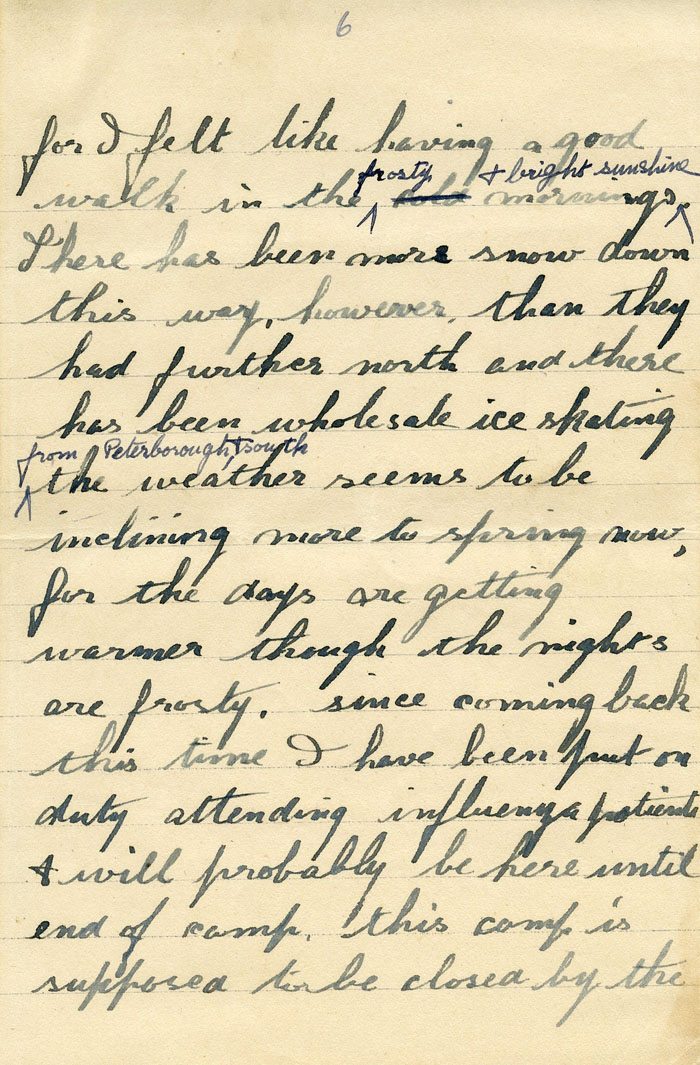 6
for I felt like having a good
frosty & bright sunshine
walk in the cold mornings.
There has been more snow down
this way, however, than they
had further north and there
has been wholesale ice skating
from Peterborough, south
the weather seems to be
inclining more to spring now,
for the days are getting
warmer though the nights
are frosty. since coming back
this time I have been put on
duty attending influenza patients
& will probably be here until
end of camp. this camp is
supposed to be closed by the